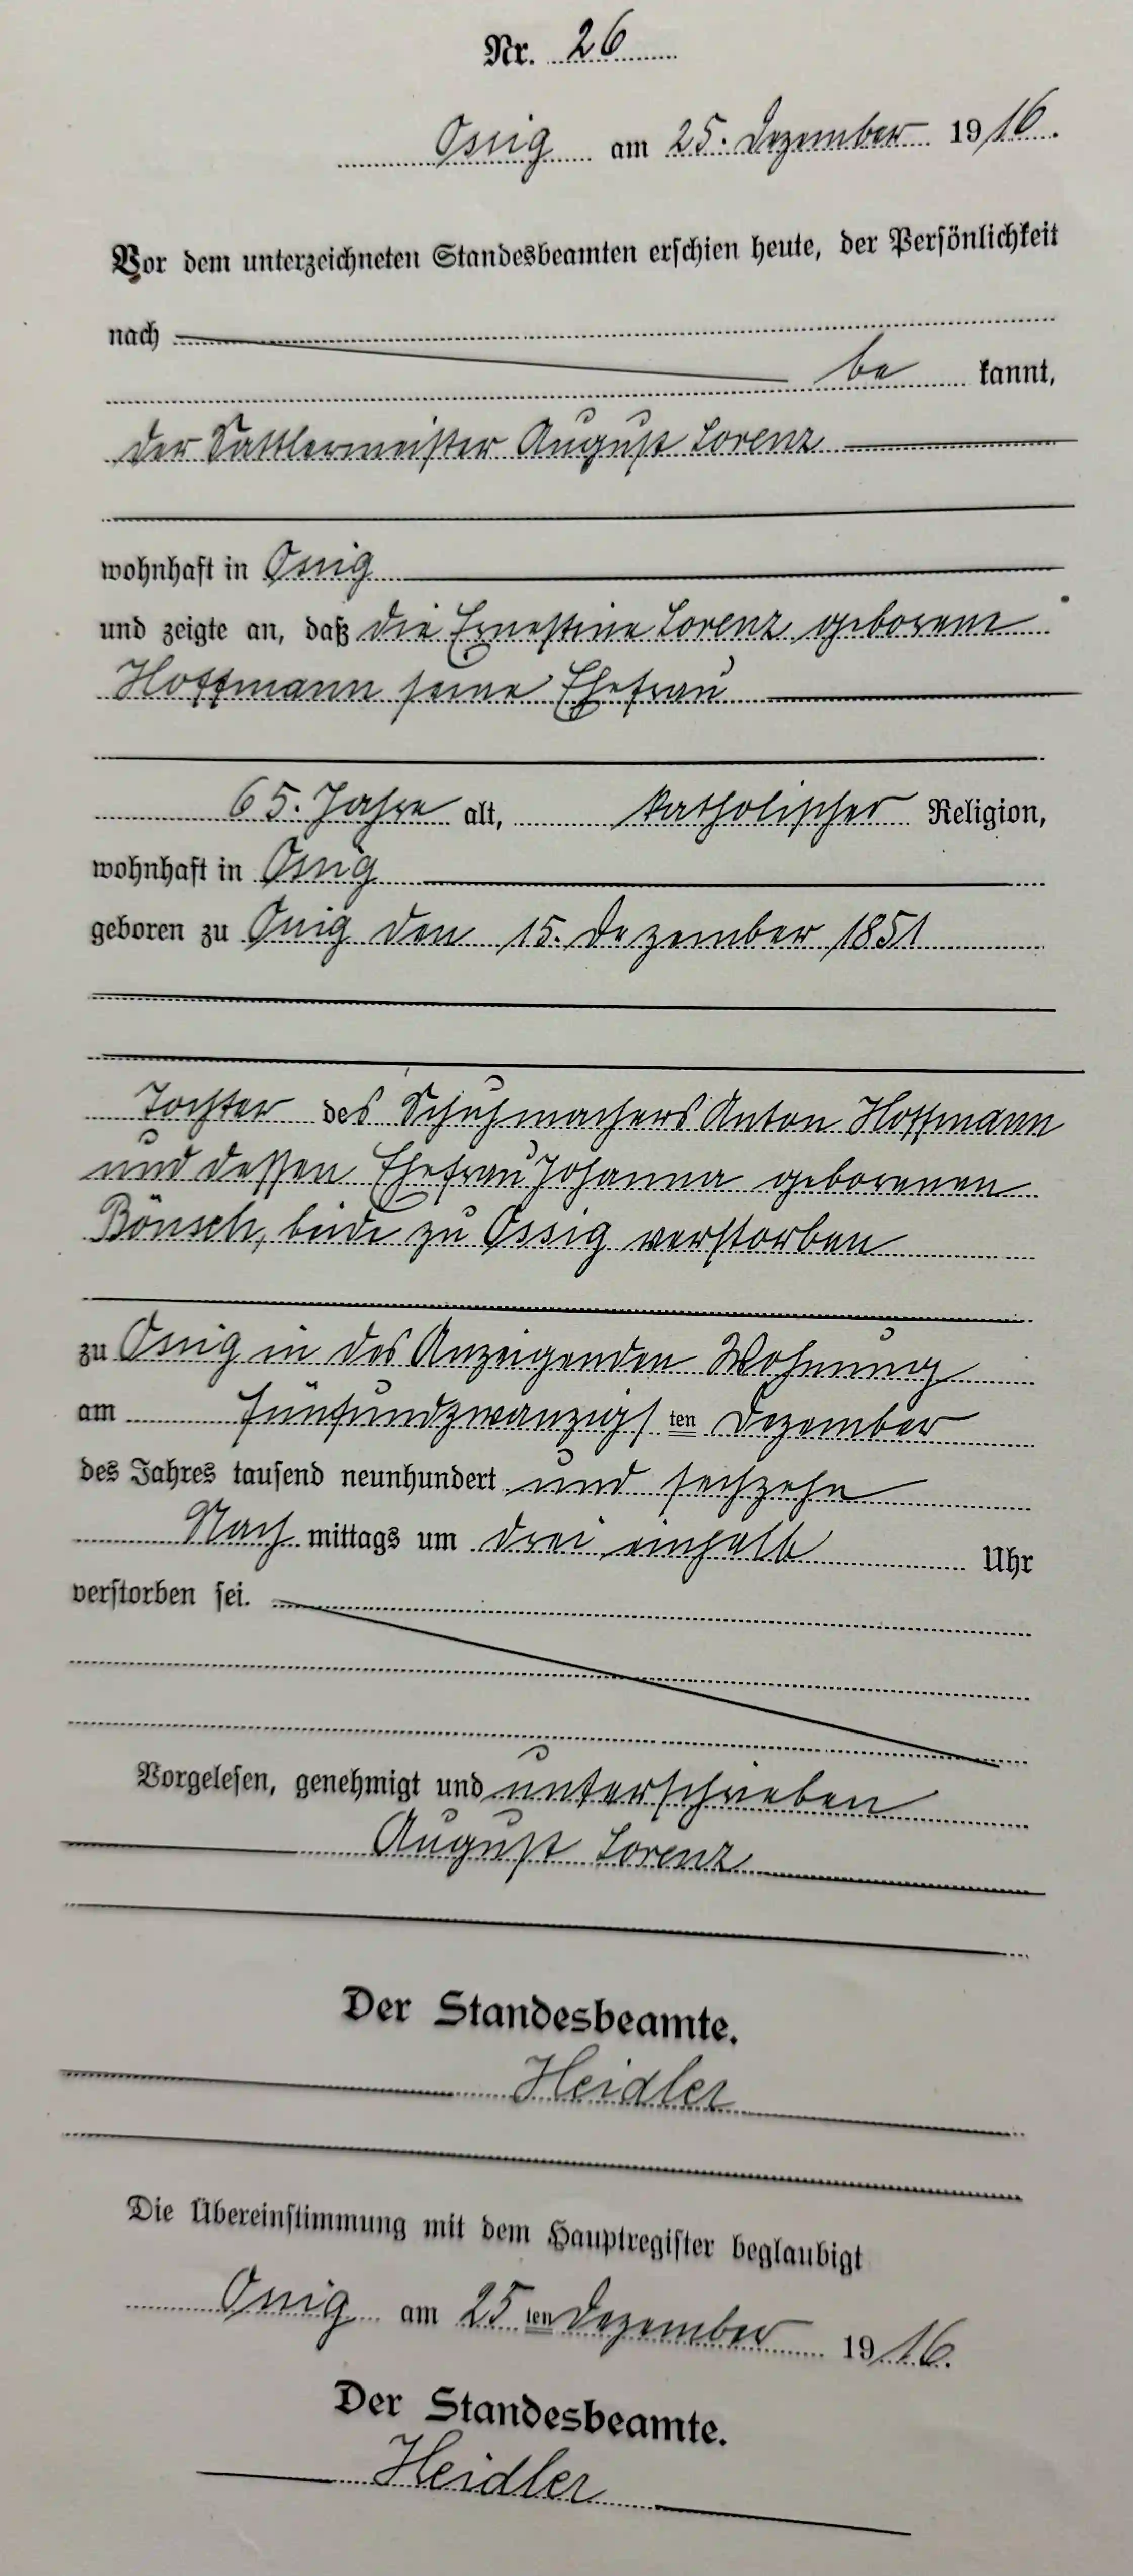 Nr. 26
Ossig am 25. Dezember 1916.
Vor dem unterzeichneten Standesbeamten erschien heute, der Persönlichkeit
nach
be kannt,
der Sattlermeister August Lorenz
wohnhaft in Ossig
und zeigte an, daß die Ernestine Lorenz geborene
Hoffmann seine Ehefrau
65. Jahre alt, katholischer Religion,
wohnhaft in Ossig
geboren zu Ossig den 15. Dezember 1851
Tochter des Schuhmachers Anton Hoffmann
und dessen Ehefrau Johanna geborenen
Bönsch, beide zu Ossig verstorben
zu Ossig in des Anzeigenden Wohnung
am fünfundzwanzigs ten Dezember
des Jahres tausend neunhundert und sechzehn
Nach mittags um drei einhalb Uhr
verstorben sei.
Vorgelesen, genehmigt und unterschrieben
August Lorenz
Der Standesbeamte.
Heidler
Die Übereinstimmung mit dem Hauptregister beglaubigt
Ossig am 25 ten Dezember 1916.
Der Standesbeamte.
Heidler